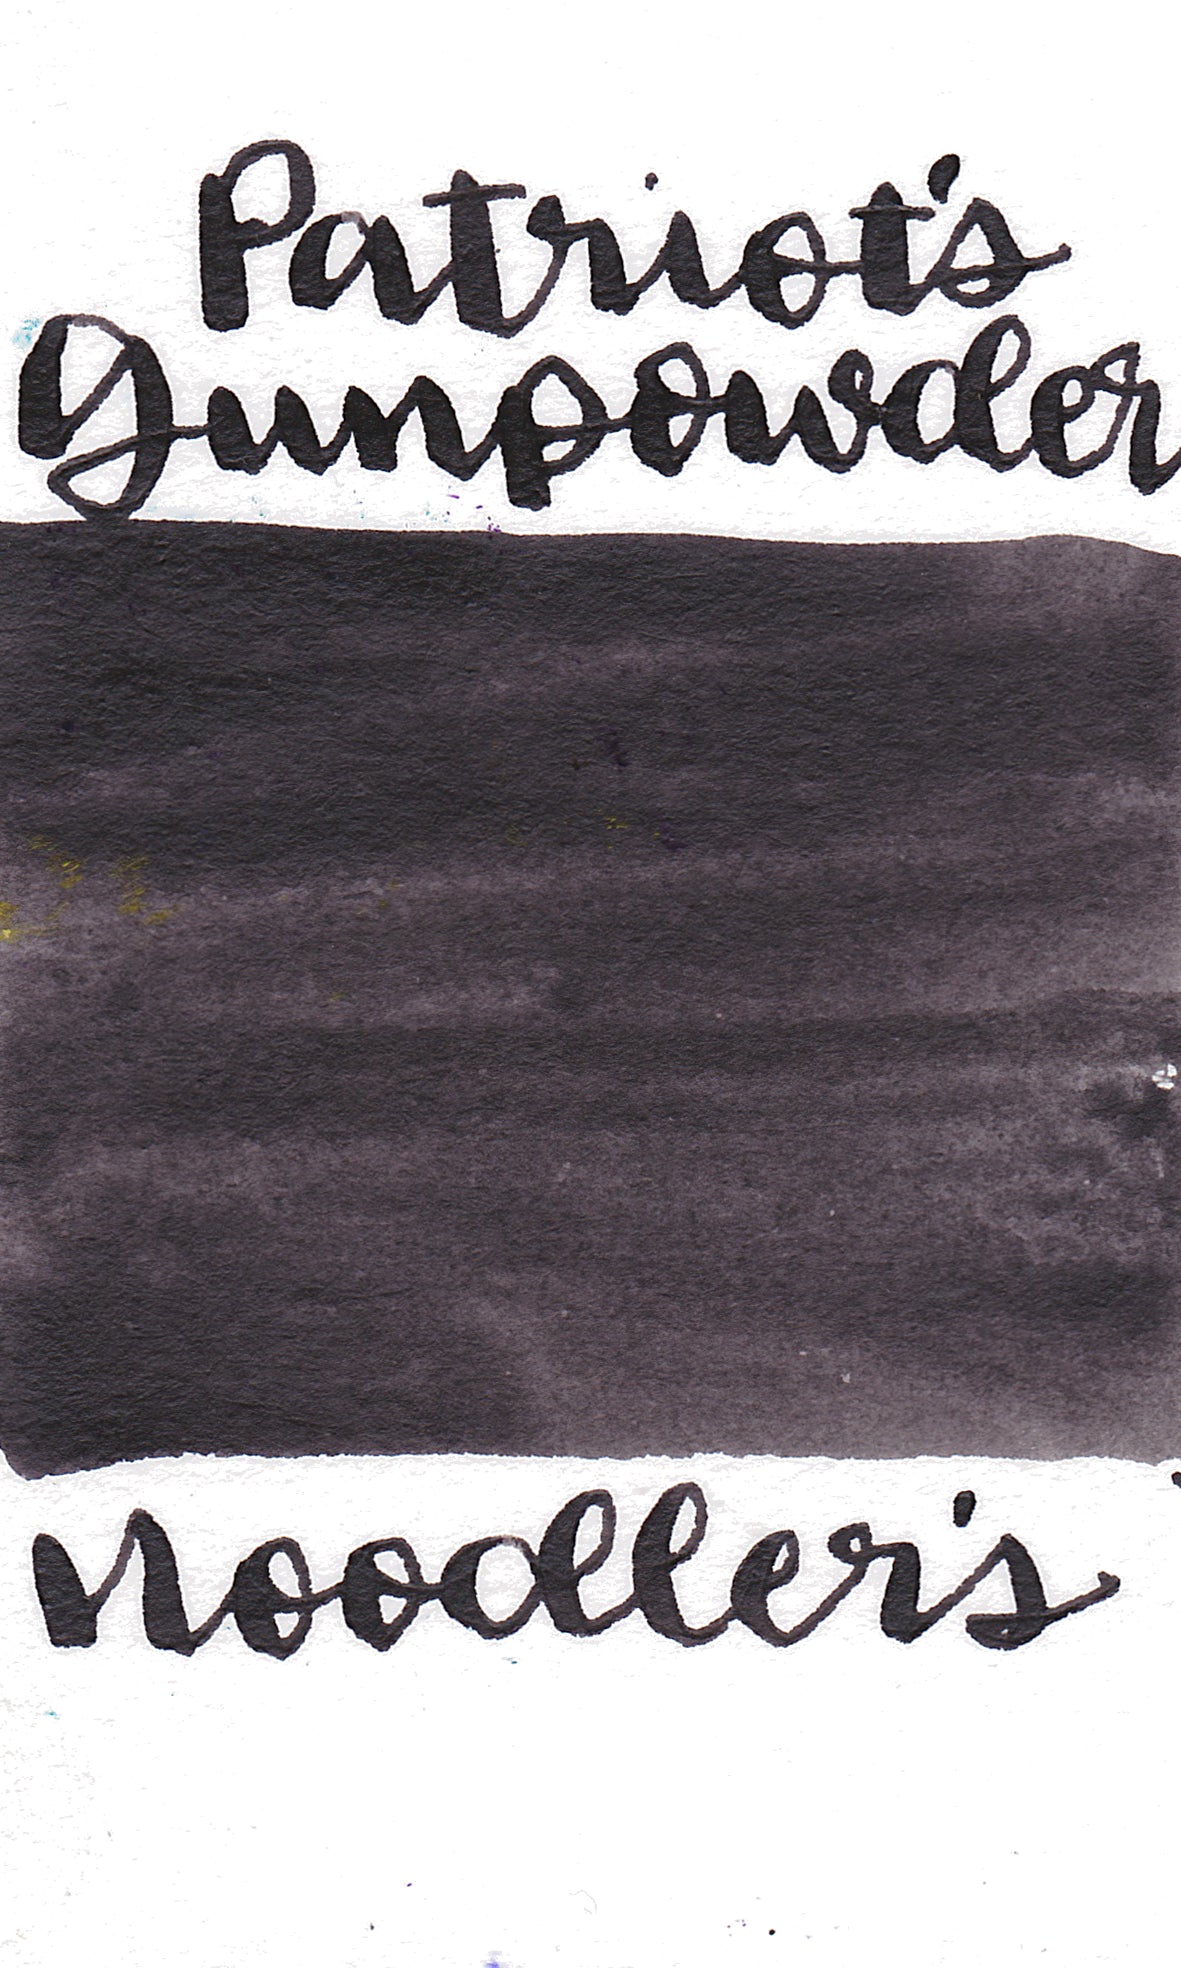 Patriot's
Gunpowder
Noodler's